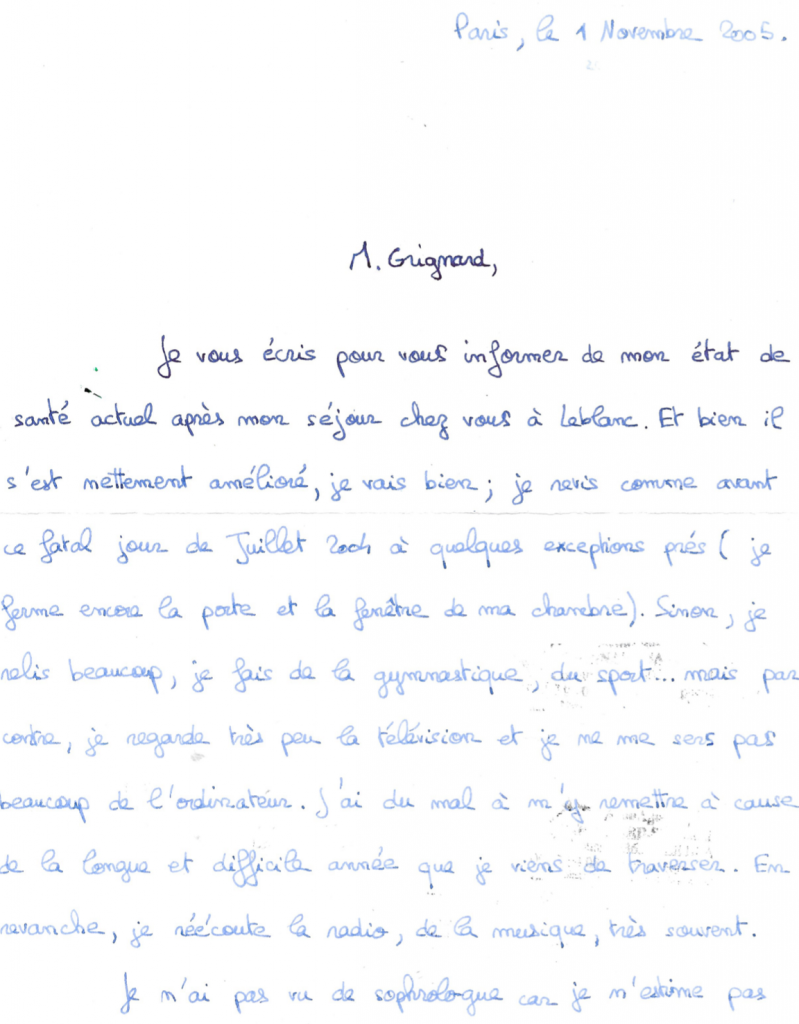 Paris, le 1 Novembre 2005.
M. Grignard,
Je vous écris pour vous informer de mon état de
santé actuel après mon séjour chez vous à Leblanc. Et bien il
s'est nettement amélioré, je vais bien ; je revis comme avant
ce fatal jour de Juillet 2004 à quelques exceptions prés ( je
ferme encore la porte et la fenêtre de ma chambre). Sinon, je
relis beaucoup, je fais de la gymnastique, du sport... mais par
contre, je regarde très peu la télévision et je ne me sers pas
beaucoup de l'ordinateur. J'ai du mal à m'y remettre à cause
de la longue et difficile année que je viens de traverser. En
revanche, je réécoute la radio, de la musique, très souvent.
Je n'ai pas vu de sophrologue car je n'estime pas